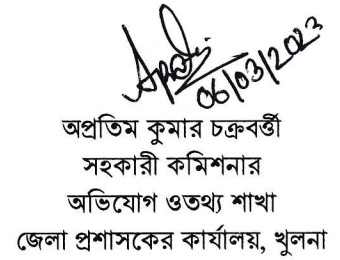 06/03/2023
অপ্রতিম কুমার চক্রবর্ত্তী
সহকারী কমিশনার
অভিযোগ ওতথ্য শাখা
জেলা প্রশাসকের কার্যালয়, খুলনা